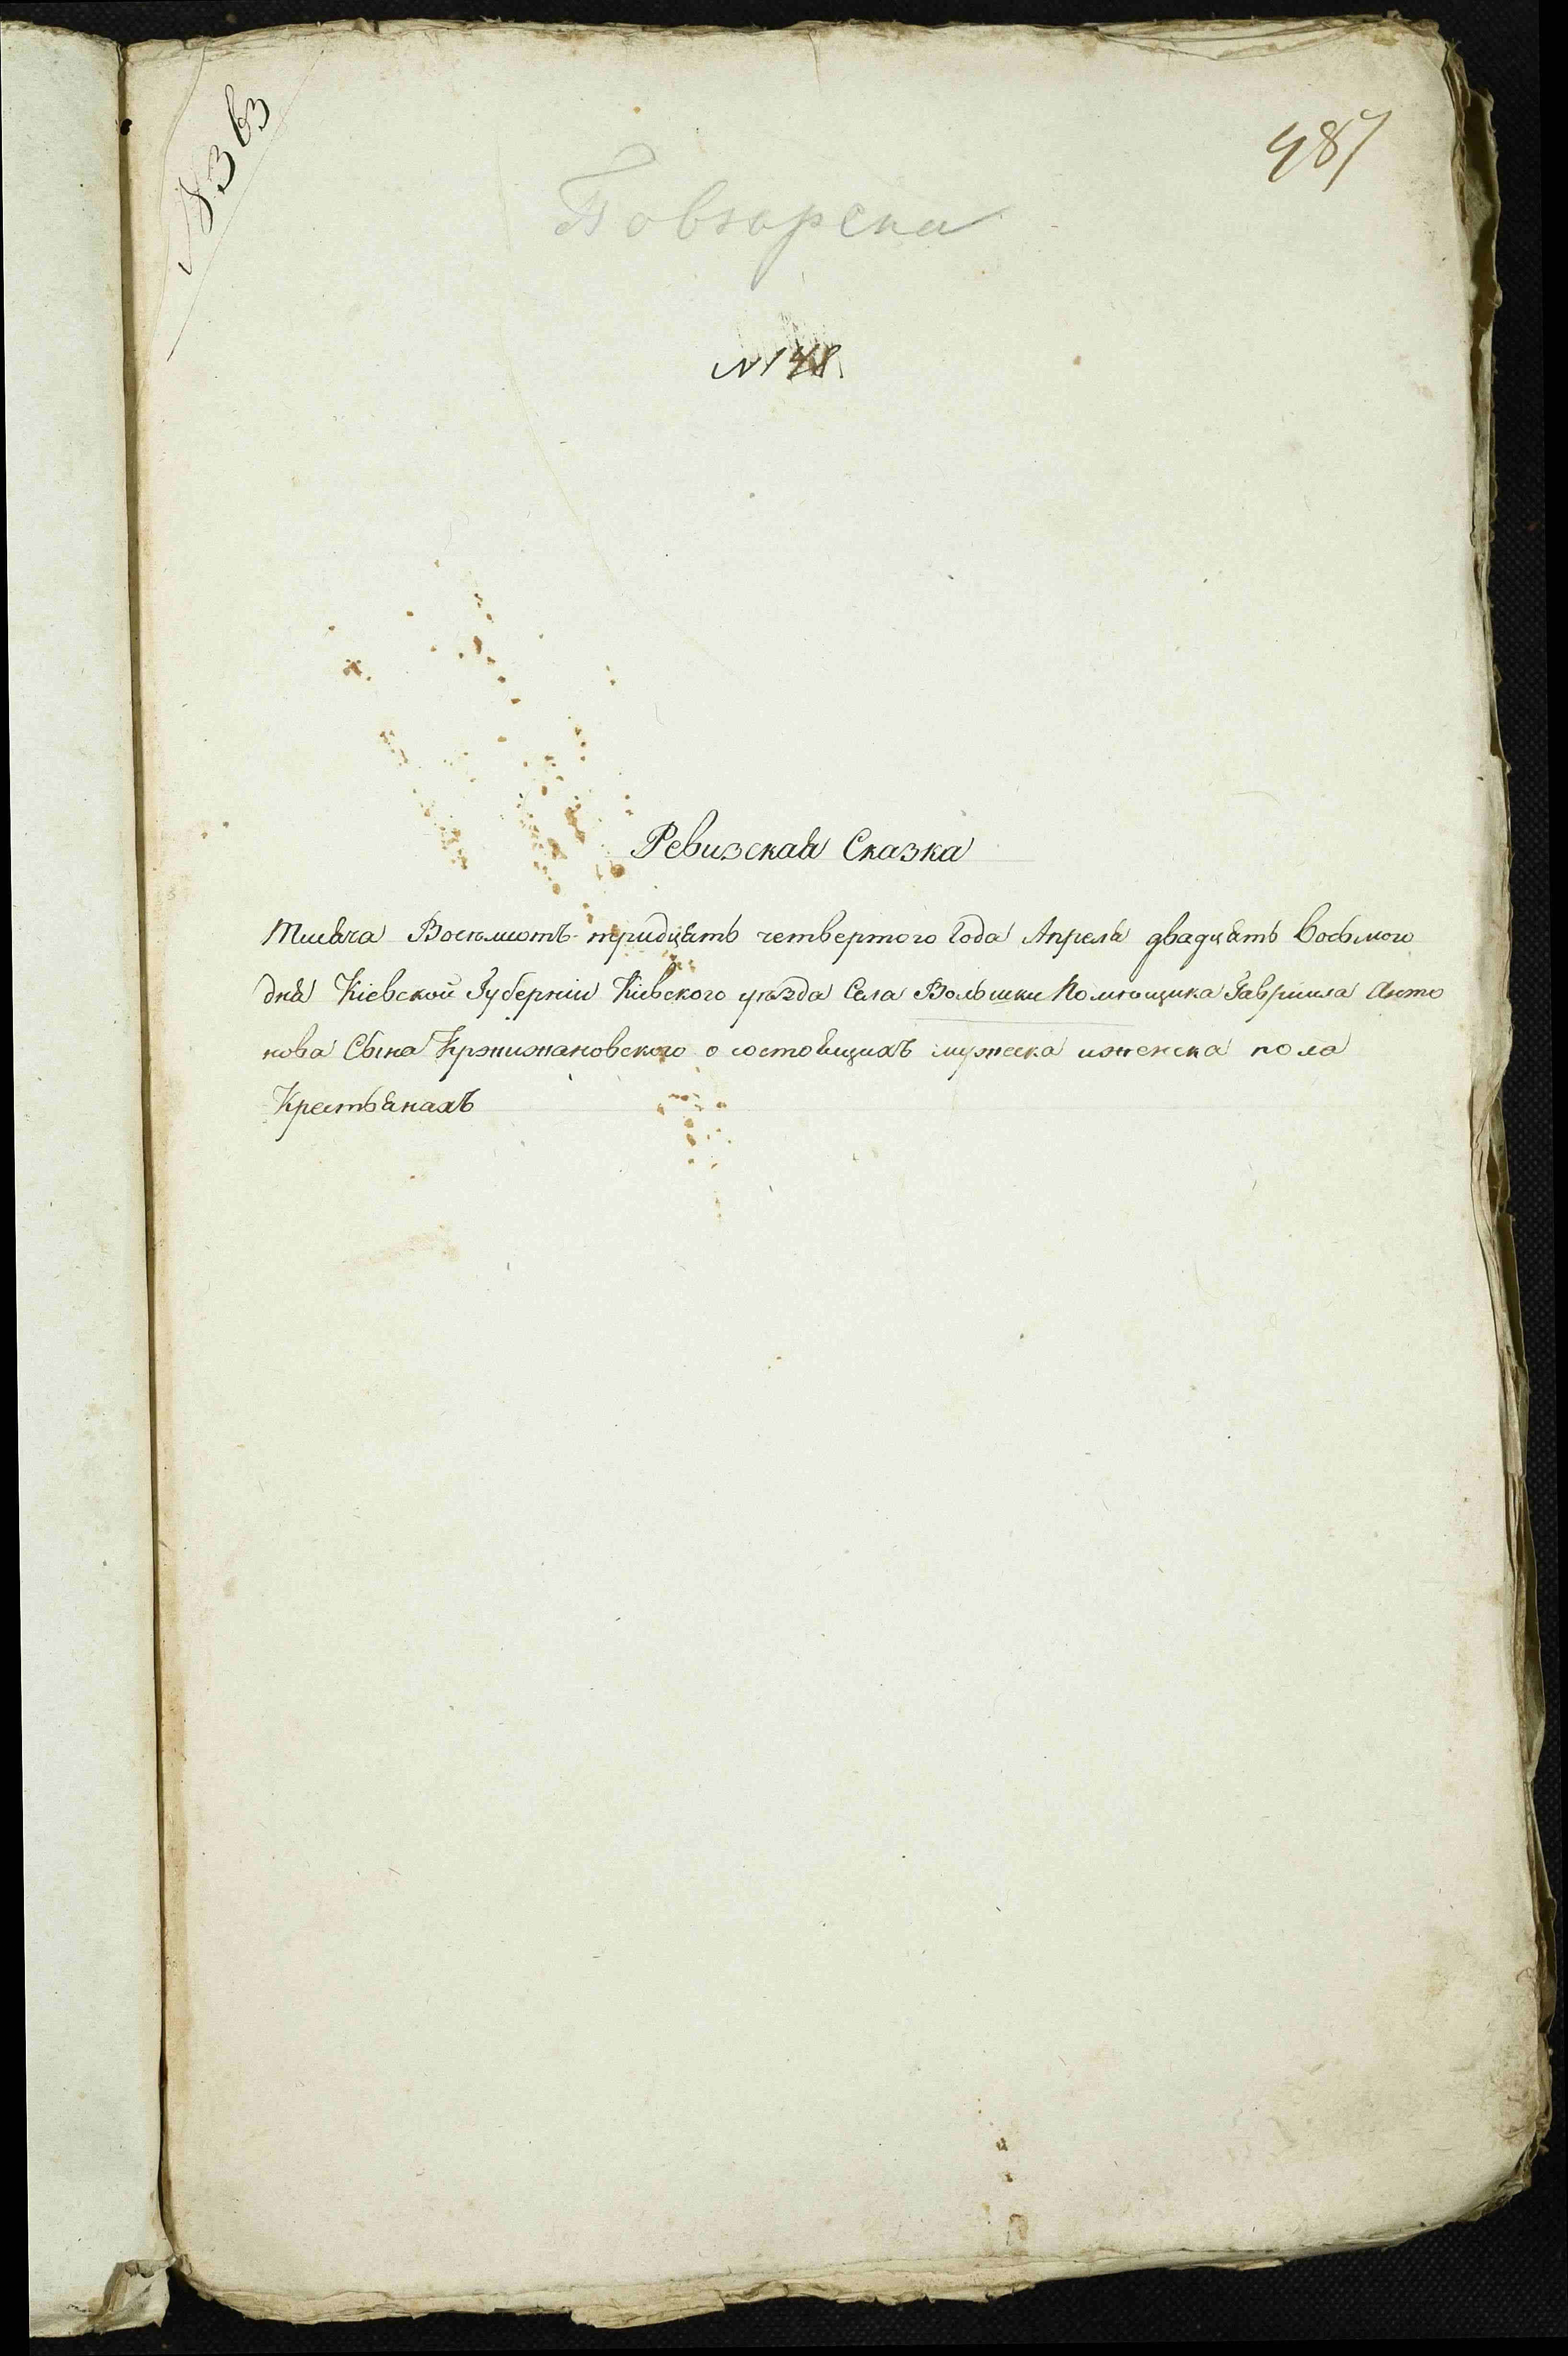 487
№ 8363
Повѣрена
№ 148
Ревизская Сказка
Тысяча Восемсотъ тридцать четвертого Года Апреля двадцать восьмого
дня Кіевской Губерніи Кіевского уѣзда Села Вольшки Помѣщика Гавріила Анто
нова Сына Кржижановского о состоящихъ мужеска иженска пола
Крестьянахъ